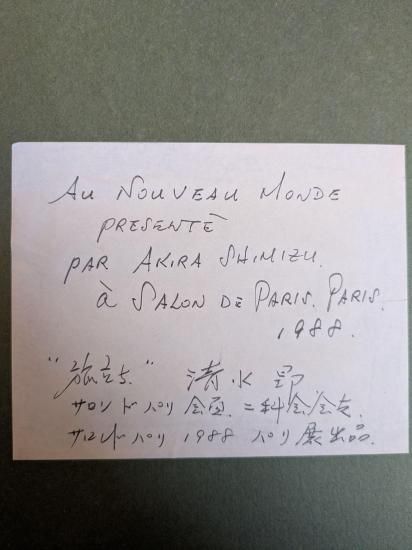 AU NOUVEAU MONDE
PRESENTÈ
PAR AKIRA SHIMIZU.
à SALON DE PARIS. PARIS.
1988.
"旅立ち" 清水 昂
サロンドパリ会員. 二科会会友.
サロンドパリ 1988 パリ展出品.